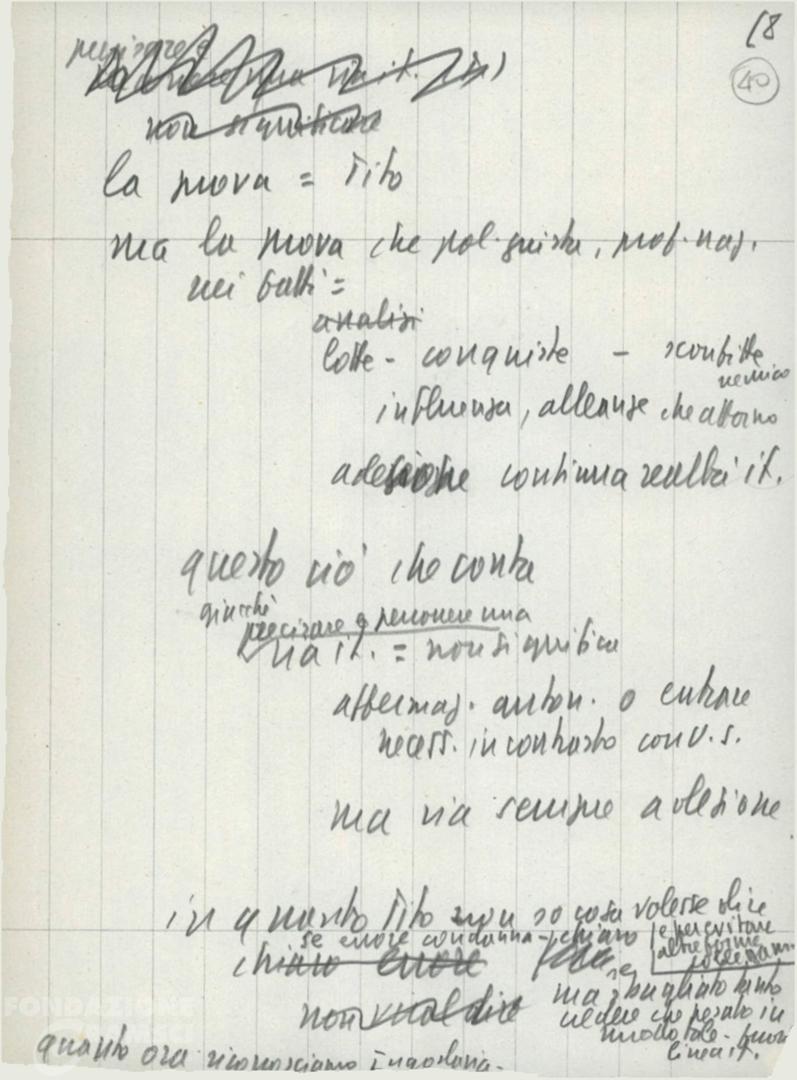 18
40
precisare
non significare
la prova = Tito
ma la prova che pol. giusta, prof. naz.
nei fatti =
analisi
lotte - conquiste - sconfitte
nemico
influenza, alleanze che attorno
adesione continua realtà it.
questo ciò che conta
giacché
precisare e percorrere una
via it. = non significa
affermaz. auton. o entrare
necess. in contrasto con U.S.
ma via sempre adesione
in quanto Tito non so cosa volesse dire
se errore condanna - chiaro
e per evitare
altre forme
collegam.
chiaro errore
se
non vuol dire
ma sbagliato tanto
vedere che pesato in
modo tale - fuori
linea it.
quanto ora riconosciamo Jugoslavia.
FONDAZIONE